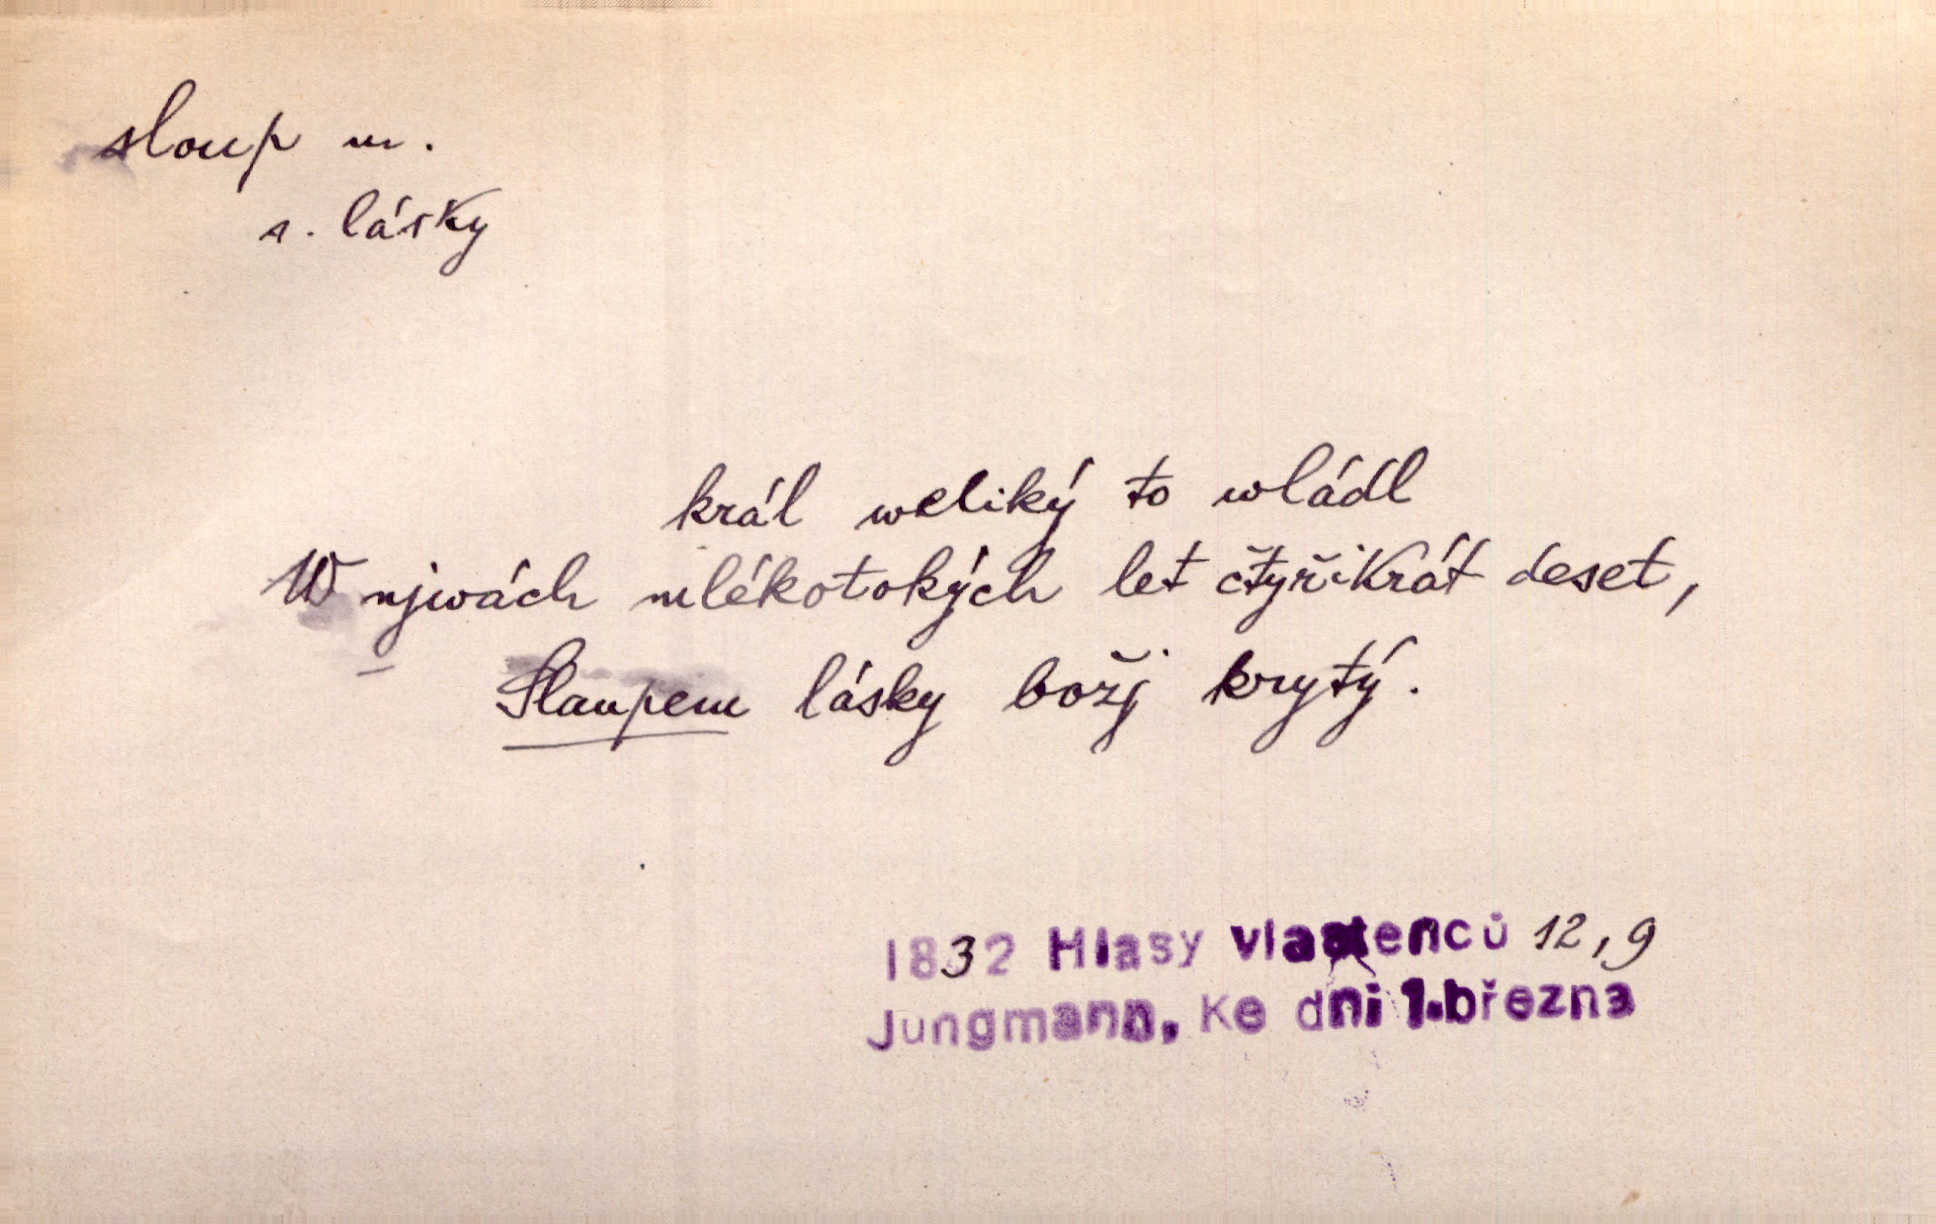 sloup m.
s. lásky
král weliký to wládl
W njwách mlékotokých let čtyřikrát deset,
Slaupem lásky božj krytý.
1832 Hlasy vlastenců 12,9
Jungmann, Ke dni 1.března